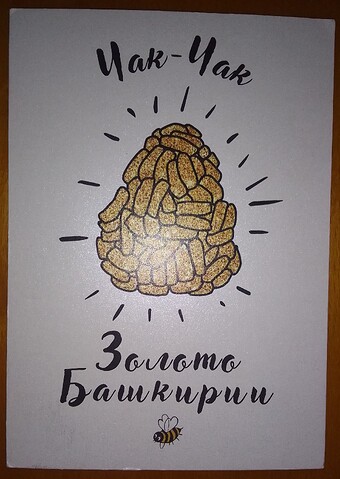 Чак-Чак
Золото
Башкирии